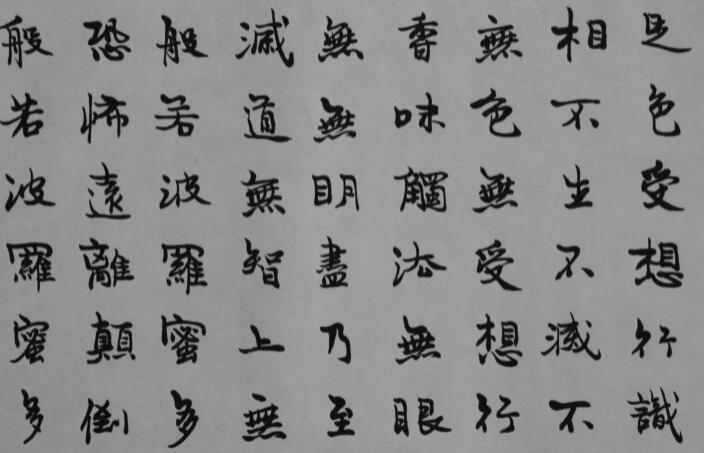 是色受想行識
相不生不滅不
無色無受想行
香味觸法無眼
無無明盡乃至
滅道無智上無
般若波羅蜜多
恐怖遠離顛倒
般若波羅蜜多